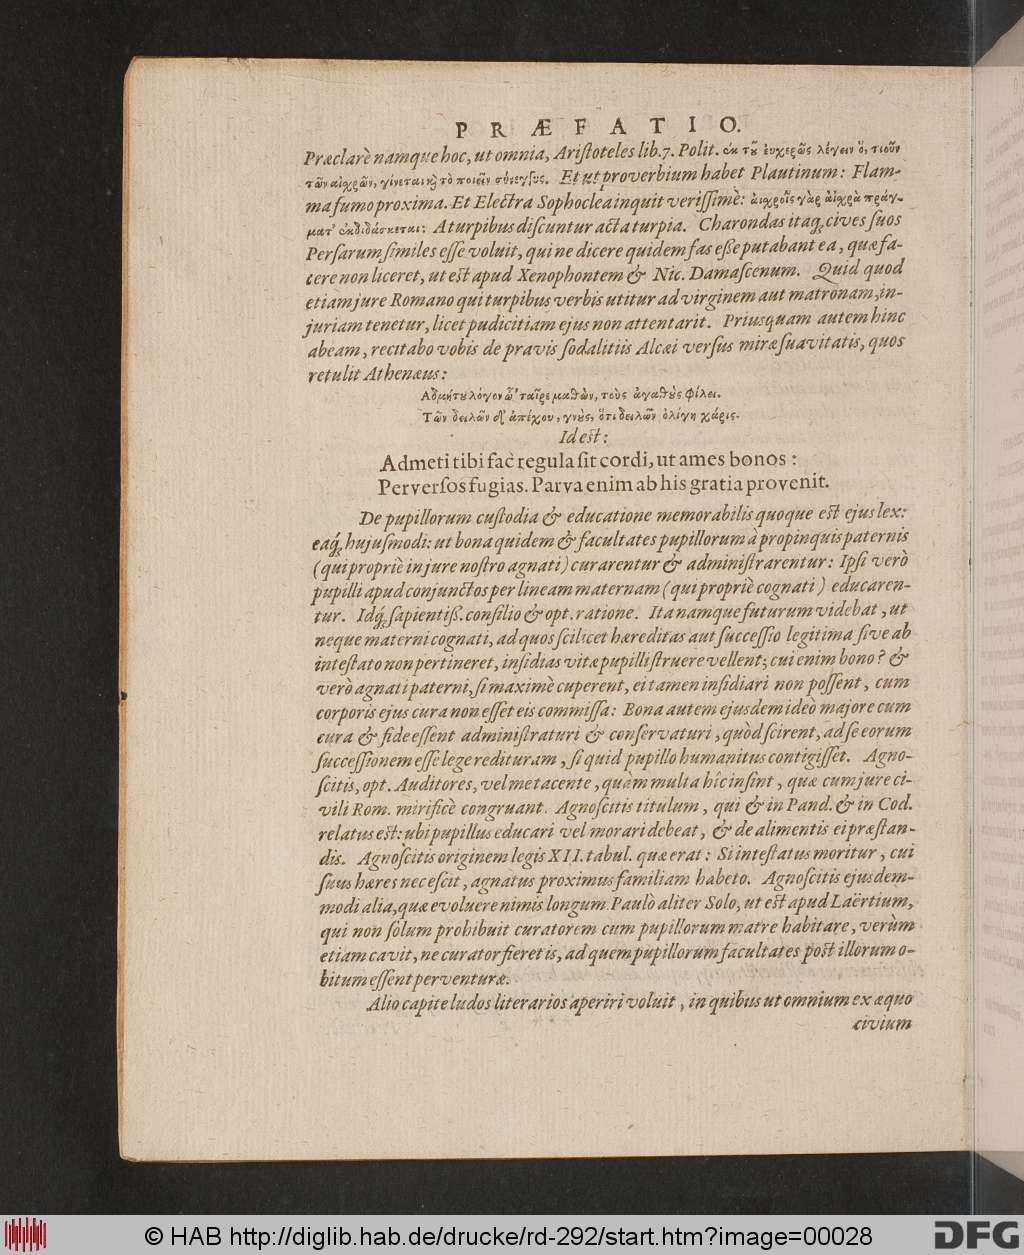 PRÆFATIO.
Præclarè namque hoc, ut omnia, Aristoteles lib. 7. Polit. ἐκ τοῦ εὐχερῶς λέγειν ὅ, τι οὖν
τῶν αἰχρῶν, γίνεται καὶ τὸ ποιεῖν σύνεγγυς. Et ut proverbium habet Plautinum: Flam-
ma fumo proxima. Et Electra Sophoclea inquit verissimè: αἰχροῖς γὰρ αἰχρὰ πράγ-
ματ' ἐκδιδάσκεται: A turpibus discuntur acta turpia. Charondas itaq; cives suos
Persarum similes esse voluit, qui ne dicere quidem fas esse putabant ea, quæ fa-
cere non liceret, ut est apud Xenophontem & Nic. Damascenum. Quid quod
etiam jure Romano qui turpibus verbis utitur ad virginem aut matronam, in-
juriam tenetur, licet pudicitiam ejus non attentarit. Priusquam autem hinc
abeam, recitabo vobis de pravis sodalitiis Alcæi versus miræ suavitatis, quos
retulit Athenæus:
Ἀδμήτου λόγον ὦ 'ταῖρε μαθὼν, τοὺς ἀγαθοὺς φίλει.
Τῶν δειλῶν δ' ἀπέχου, γνοὺς, ὅτι δειλῶν ὀλίγη χάρις.
Id est:
Admeti tibi fac regula sit cordi, ut ames bonos:
Perversos fugias. Parva enim ab his gratia provenit.
De pupillorum custodia & educatione memorabilis quoque est ejus lex:
eaq́; hujusmodi: ut bona quidem & facultates pupillorum à propinquis paternis
(qui propriè in jure nostro agnati) curarentur & administrarentur: Ipsi verò
pupilli apud conjunctos per lineam maternam (qui propriè cognati) educaren-
tur. Idq́; sapientiß. consilio & opt. ratione. Ita namque futurum videbat, ut
neque materni cognati, ad quos scilicet hæreditas aut successio legitima sive ab
intestato non pertineret, insidias vitæ pupilli struere vellent; cui enim bono? &
verò agnati paterni, si maximè cuperent, ei tamen insidiari non possent, cum
corporis ejus cura non esset eis commissa: Bona autem ejusdem ideò majore cum
cura & fide essent administraturi & conservaturi, quòd scirent, ad se eorum
successionem esse lege redituram, si quid pupillo humanitus contigisset. Agno-
scitis, opt. Auditores, vel me tacente, quàm multa hîc insint, quæ cum jure ci-
vili Rom. mirificè congruant. Agnoscitis titulum, qui & in Pand. & in Cod.
relatus est: ubi pupillus educari vel morari debeat, & de alimentis ei præstan-
dis. Agnoscitis originem legis XII. tabul. quæ erat: Si intestatus moritur, cui
suus hæres nec escit, agnatus proximus familiam habeto. Agnoscitis ejusdem-
modi alia, quæ evoluere nimis longum. Paulò aliter Solo, ut est apud Laërtium,
qui non solum prohibuit curatorem cum pupillorum matre habitare, verùm
etiam cavit, ne curator fieret is, ad quem pupillorum facultates post illorum o-
bitum essent perventuræ.
Alio capite ludos literarios aperiri voluit, in quibus ut omnium ex æquo
civium
© HAB http://diglib.hab.de/drucke/rd-292/start.htm?image=00028
DFG